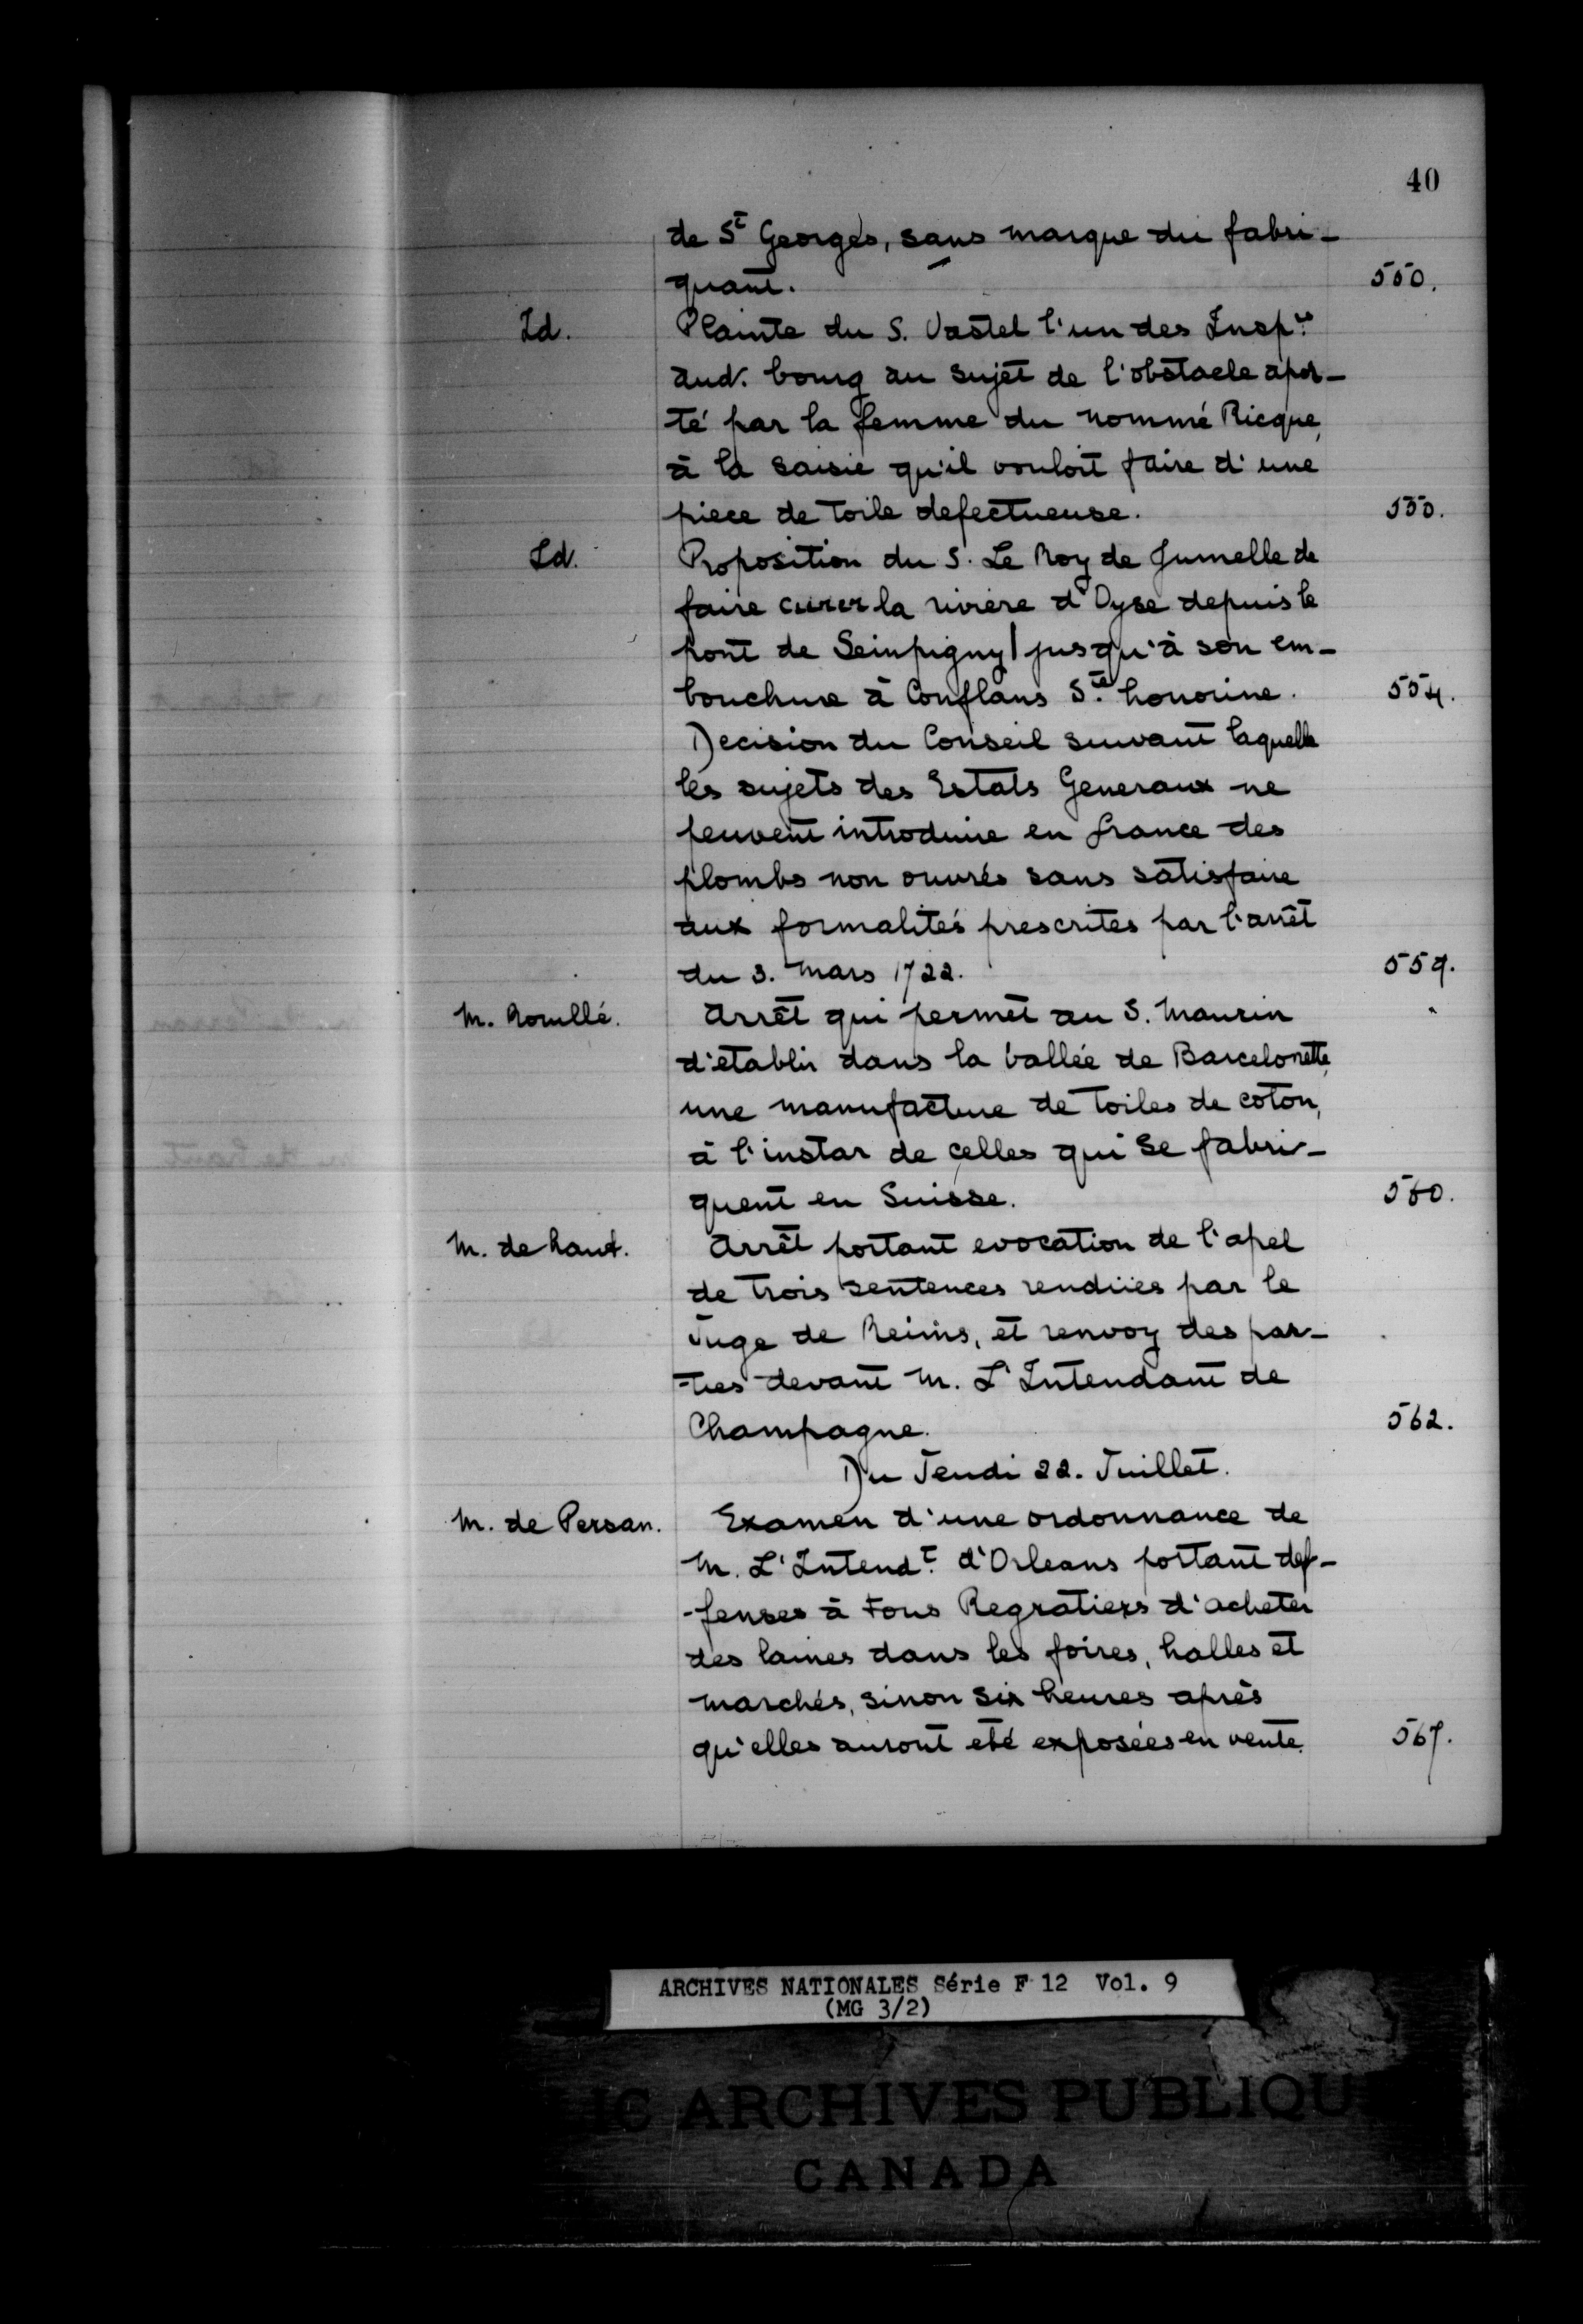 40
de St Georges, sans marque du fabri-
quant. 550.
Id. Plainte du S. Vastel l'un des Insp.rs
aud. bourg au sujet de l'obstacle apor-
té par la femme du nommé Ricque,
à la saisie qu'il vouloit faire d'une
piece de toile defectueuse. 550.
Id. Proposition du S. Le Roy de Jumelle de
faire curer la rivière d'Oyse depuis le
pont de Seinpigny jusqu'à son em-
bouchure à Conflans S.te honorine. 554.
Decision du Conseil suivant laquelle
les sujets des Estats Generaux ne
peuvent introduire en france des
plombs non ouvrés sans satisfaire
aux formalités prescrites par l'arrêt
du 3. Mars 1722. 559.
M. Rouillé. Arrêt qui permet au S. Maurin
d'etablir dans la vallée de Barcelonette,
une manufacture de toiles de coton,
à l'instar de celles qui se fabri-
quent en Suisse. 560.
M. de haut. Arrêt portant evocation de l'apel
de trois sentences rendües par le
Juge de Reims, et renvoy des par-
-ties devant M. L'Intendant de
Champagne. 562.
Du Jeudi 22. Juillet.
M. de Persan. Examen d'une ordonnance de
M. L'Intend.t d'Orleans portant def-
-fenses à tous Regratiers d'acheter
des laines dans les foires, halles et
marchés, sinon six heures après
qu'elles auront eté exposées en vente. 567.
ARCHIVES NATIONALES Série F 12 Vol. 9
(MG 3/2)
IC ARCHIVES PUBLIQU
CANADA